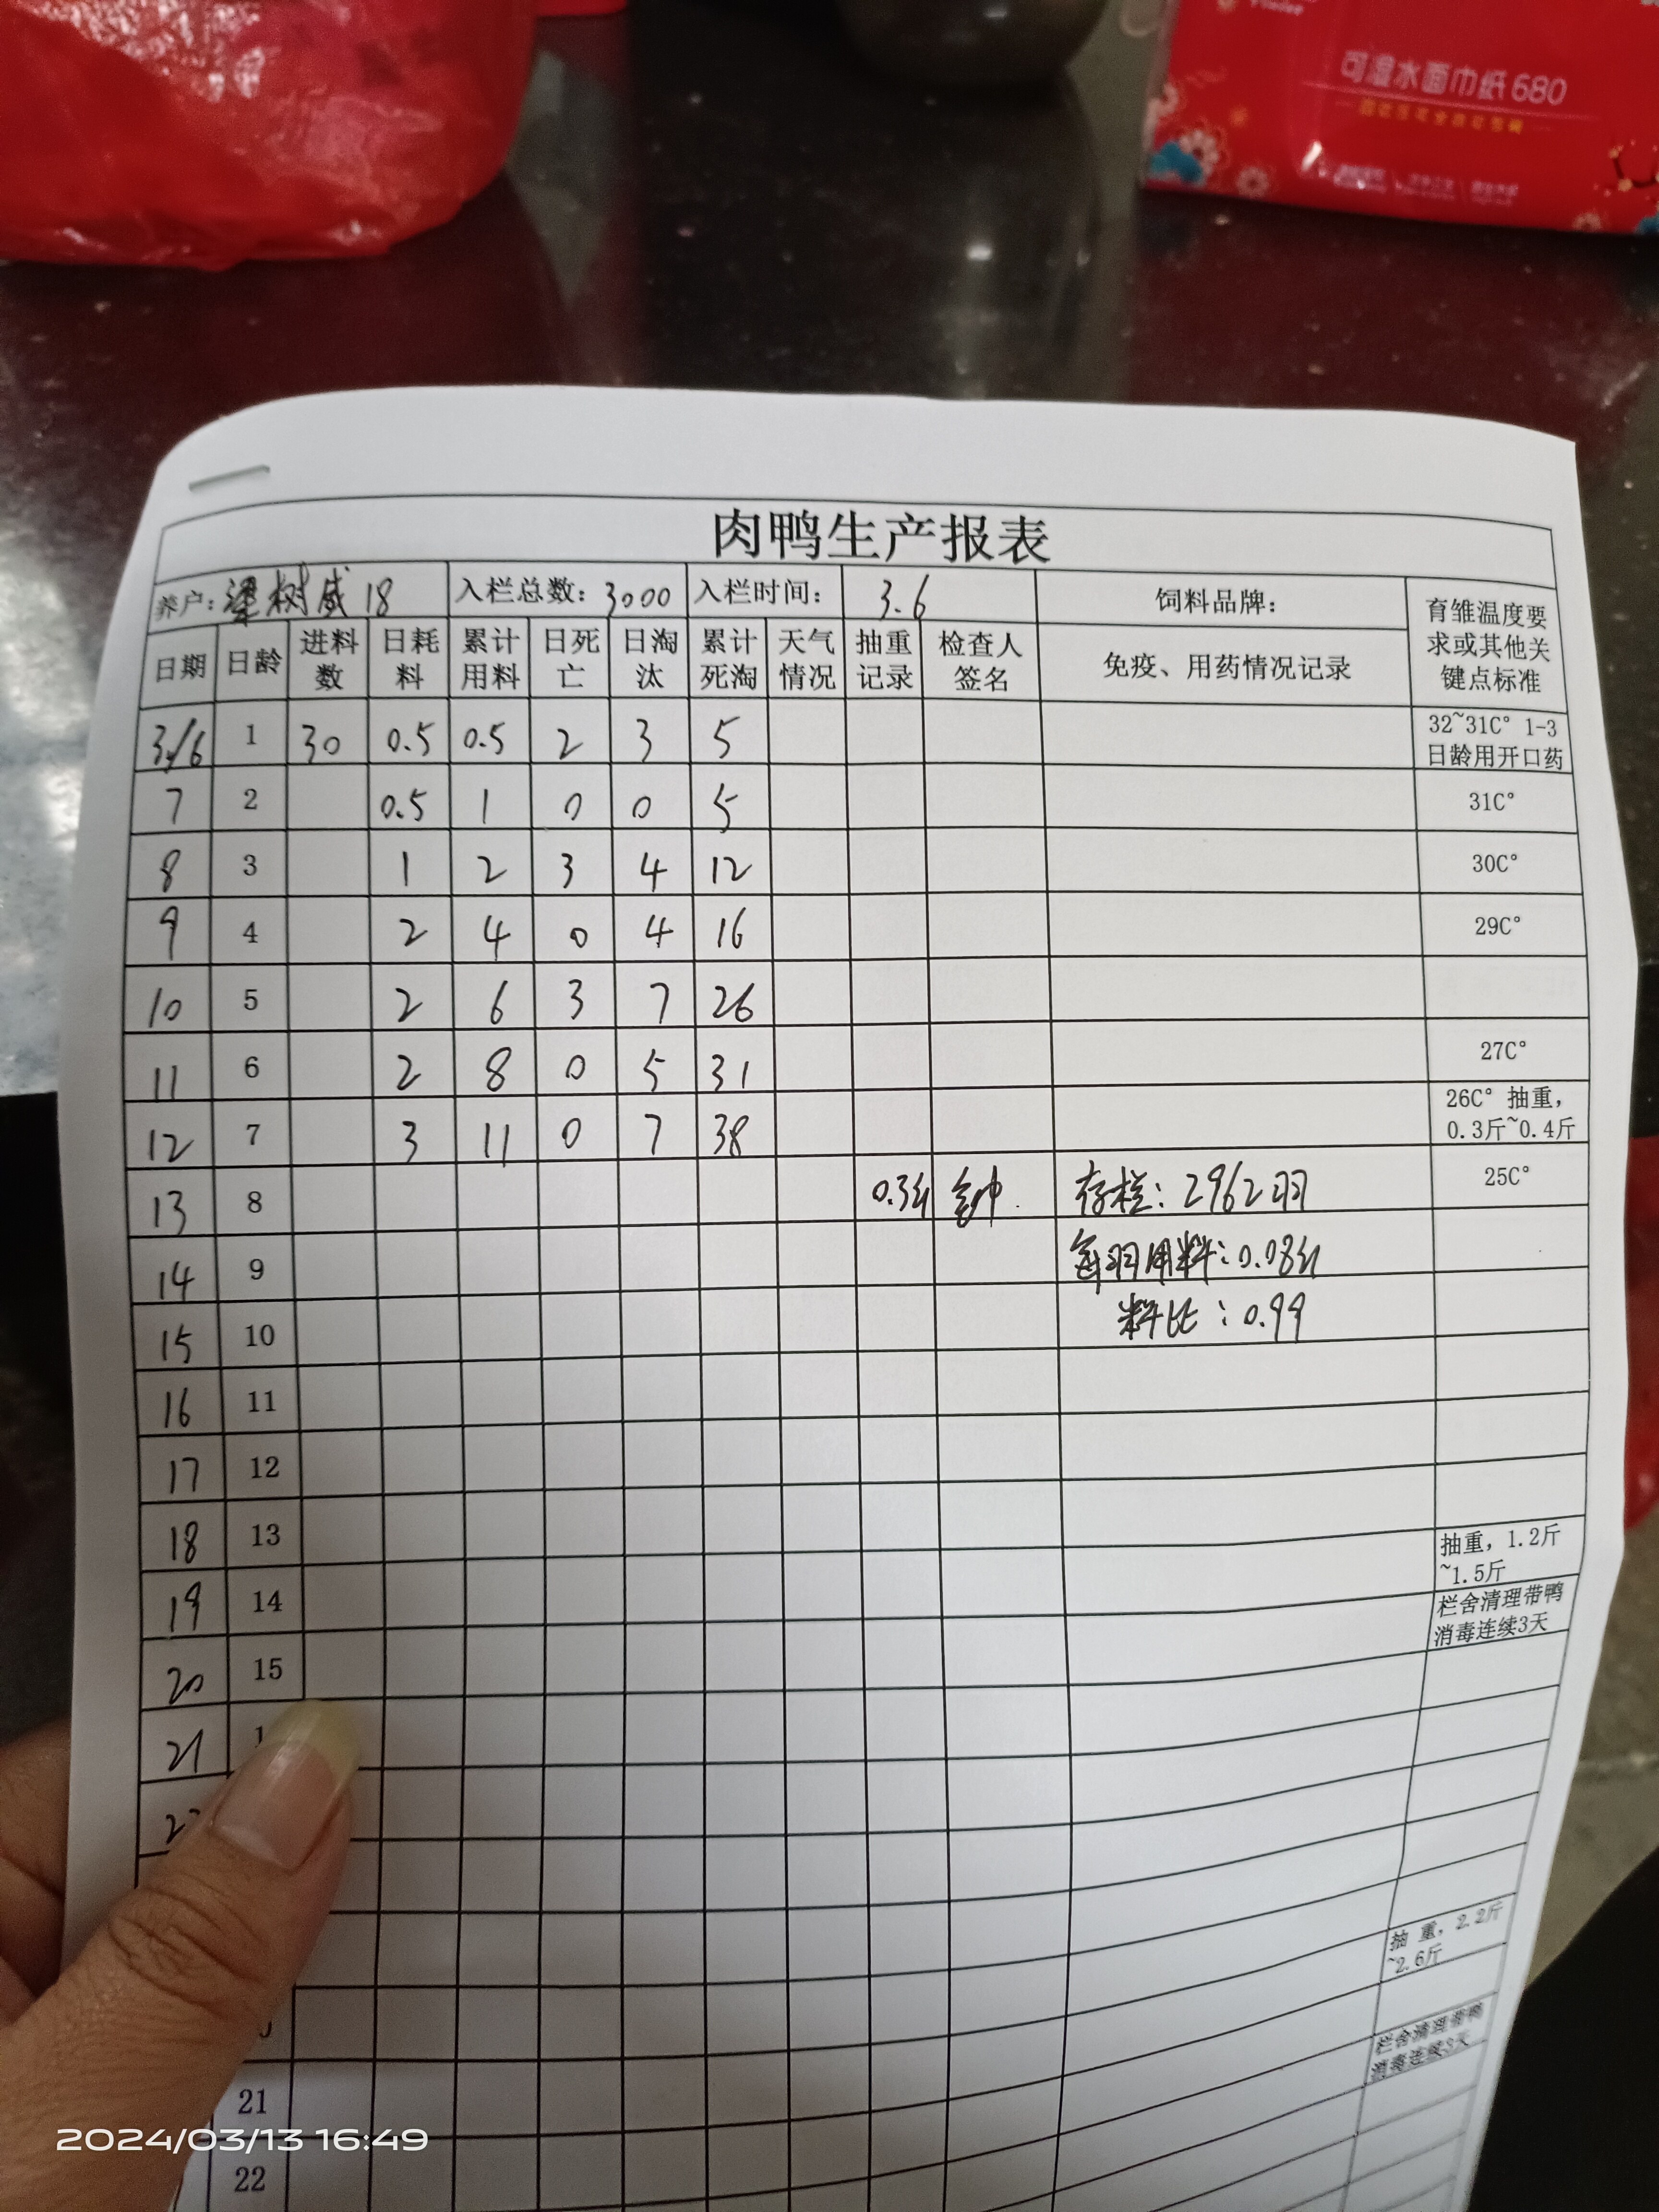 可湿水面巾纸680
肉鸭生产报表
养户: 梁树威 18 入栏总数: 3000 入栏时间: 3.6 饲料品牌: 育雏温度要求或其他关键点标准
日期 日龄 进料数 日耗料 累计用料 日死亡 日淘汰 累计死淘 天气情况 抽重记录 检查人签名 免疫、用药情况记录
3/6 1 30 0.5 0.5 2 3 5 32~31C° 1-3日龄用开口药
7 2 0.5 1 0 0 5 31C°
8 3 1 2 3 4 12 30C°
9 4 2 4 0 4 16 29C°
10 5 2 6 3 7 26
11 6 2 8 0 5 31 27C°
12 7 3 11 0 7 38 26C° 抽重, 0.3斤~0.4斤
13 8 存栏: 2962羽 25C°
14 9 每羽用料: 0.08
15 10 料比: 0.99
16 11
17 12
18 13 抽重, 1.2斤~1.5斤
19 14 栏舍清理带鸭消毒连续3天
20 15
21
抽 重, 2.2斤~2.6斤
栏舍清理带鸭消毒连续3天
21
22
2024/03/13 16:49